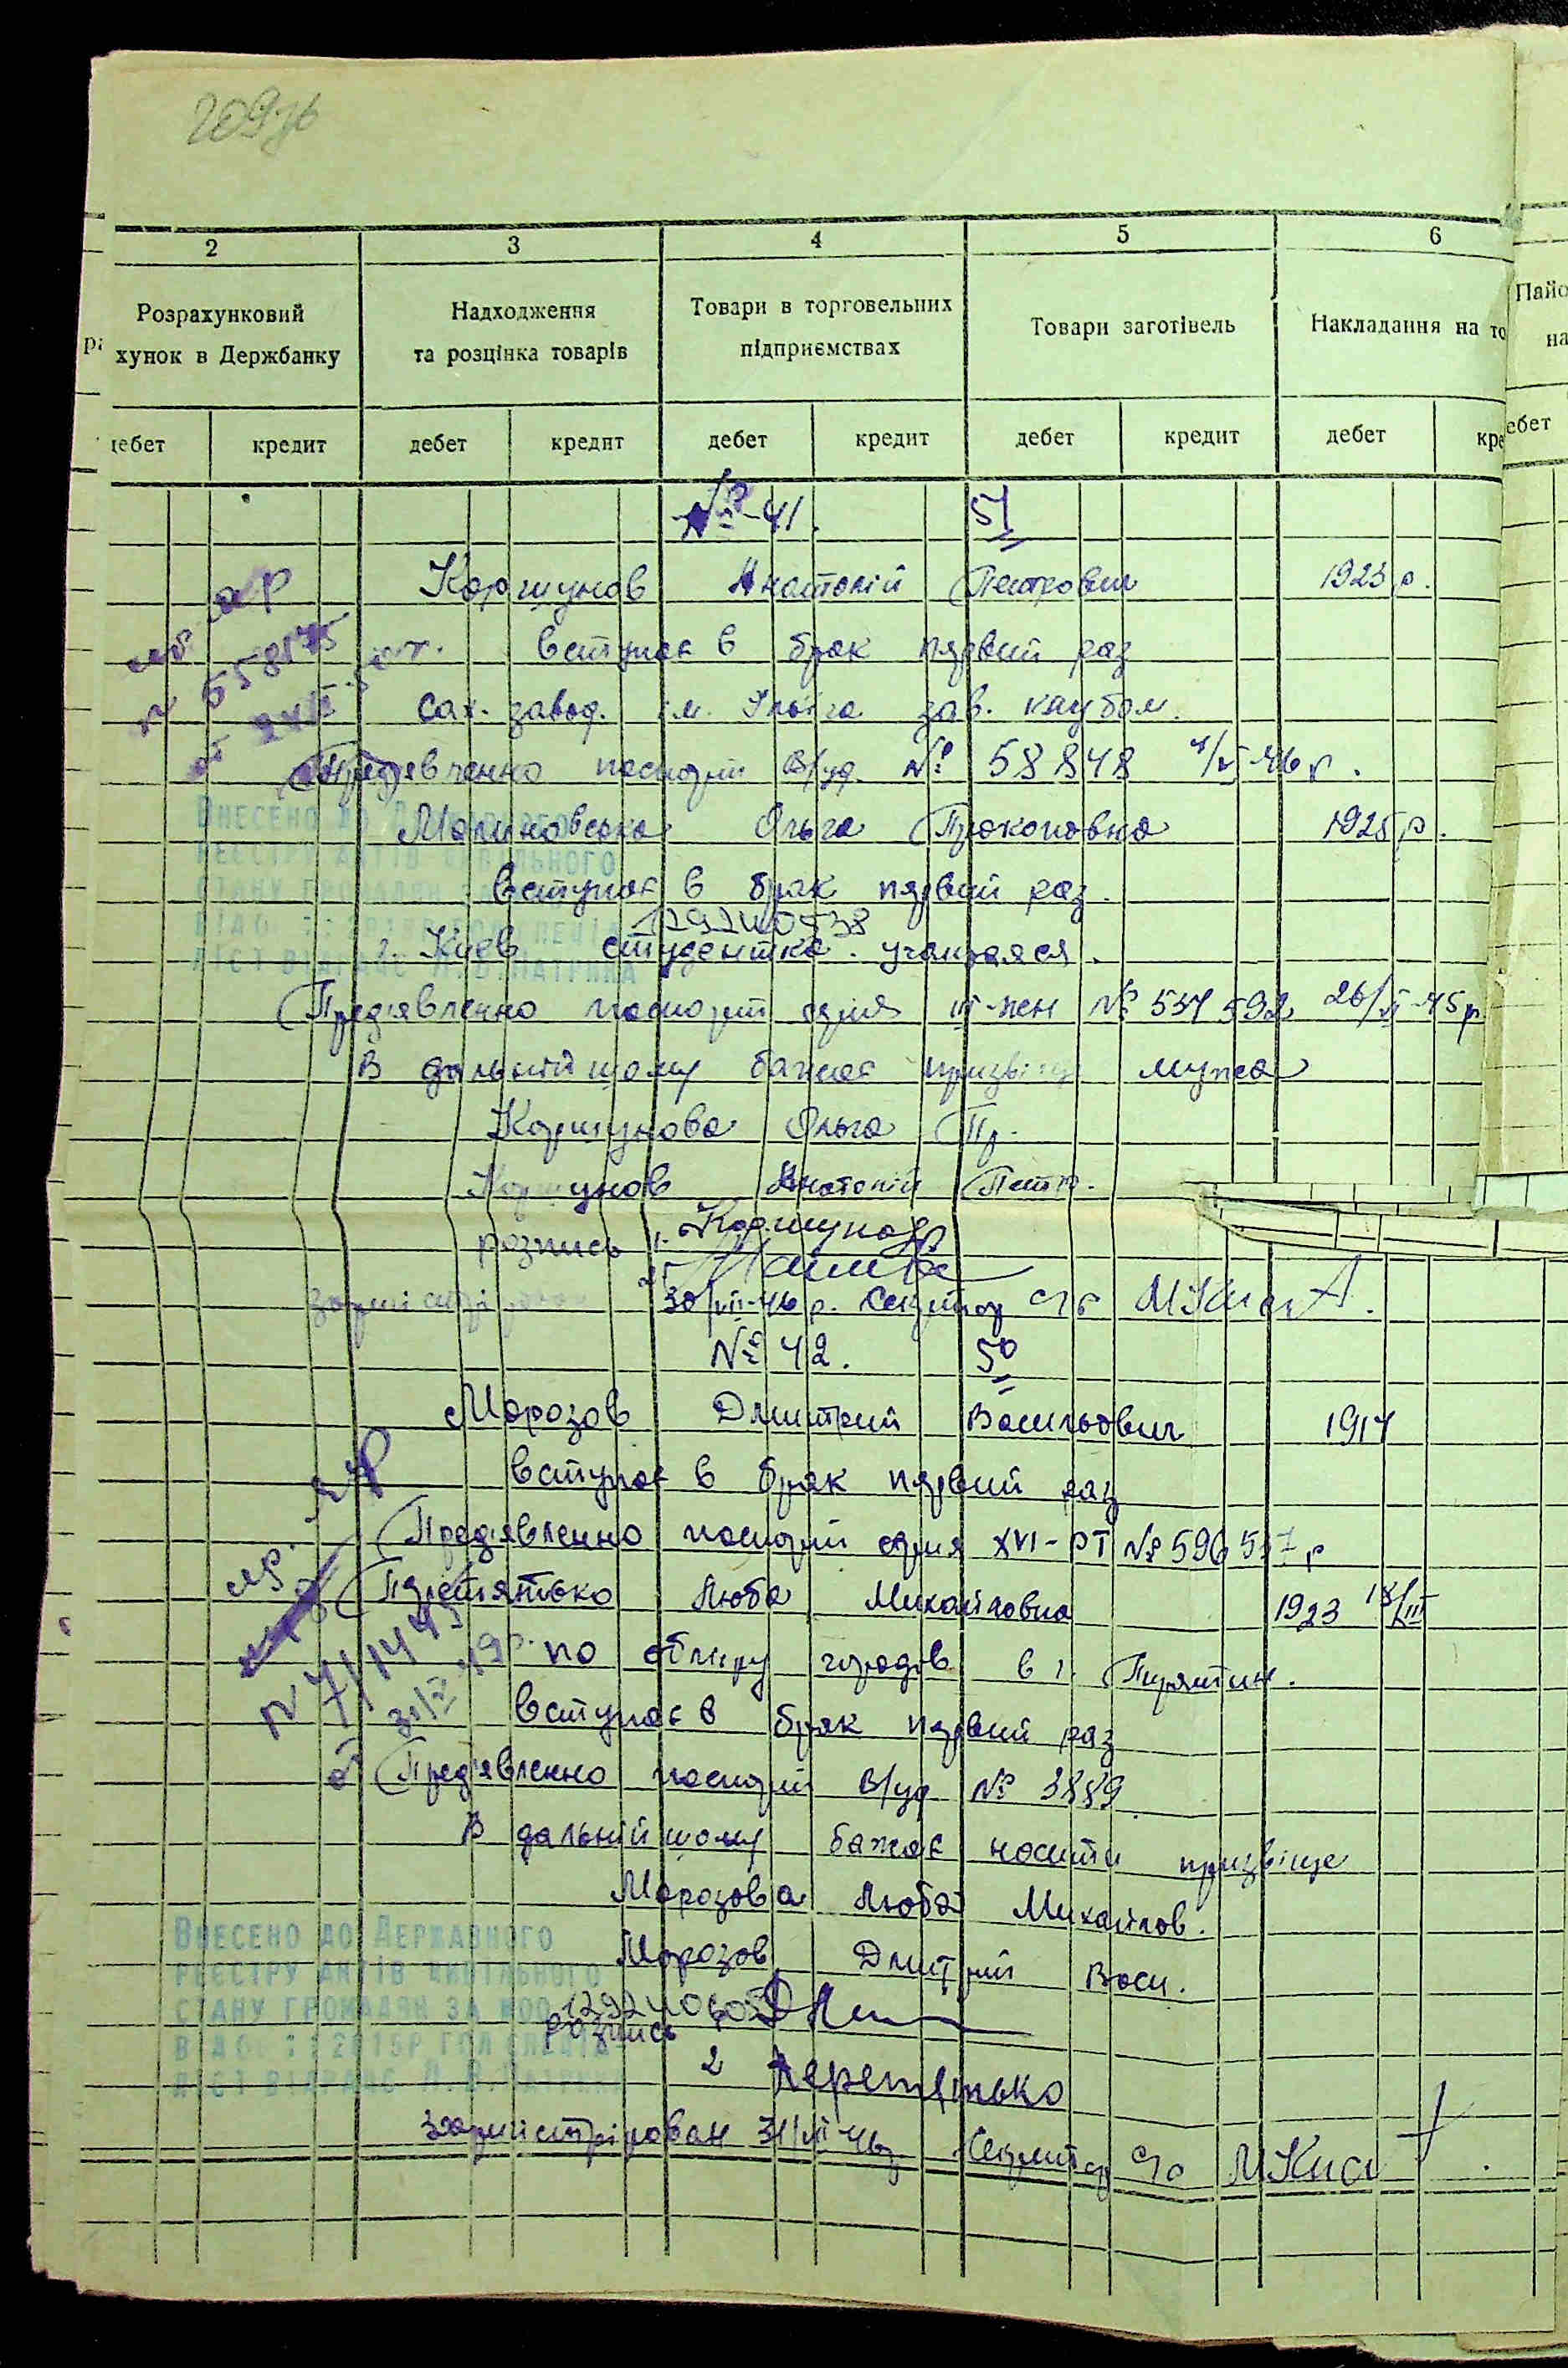 209
2 3 4 5 6
Розрахунковий
хунок в Держбанку
Надходження
та розцінка товарів
Товари в торговельних
підприємствах
Товари заготівель
Накладання на то
Пайо
на
дебет кредит дебет кредит дебет кредит дебет кредит дебет кре
ебет
№ 41. 51
Коршунов Анатолій Петрович 1923 р.
вступає в брак первий раз
Сах. завод. ім. зав. клубом.
Предявленно паспорт В/уд. № 58848 46 р.
Малиновська Ольга Прокоповна 1925 р.
вступає в брак первий раз.
г. Киев студентка. учащаяся.
Предявленно паспорт серия III-жен № 537592 26/VI-45 р
В дальнійшому бажає призвіще мужа
Коршунова Ольга Пр.
Коршунов Анатолій Петр.
розпись 1. Коршунов
2.
30/VII-46 р. Секретар с/с
№ 42. 50
Морозов Дмитрий Васильович 1917
вступає в брак первий раз
Предявленно паспорт серия XVI-РТ № 596557 р
Перетятько Люба Михайловна 1923 18/III
по обміру городів в г. Пирятин.
вступає в брак первий раз
Предявленно паспорт В/уд № 3889
В дальнійшому бажає носити призвіще
Морозова Люба Михайлов.
Морозов Дмитрий Васи.
розпись
2 Перетятько
Зарегистрірован 31/VII 46 р Секретар с/с
Внесено до Державного
реєстру актів цивільного
стану громадян за №00